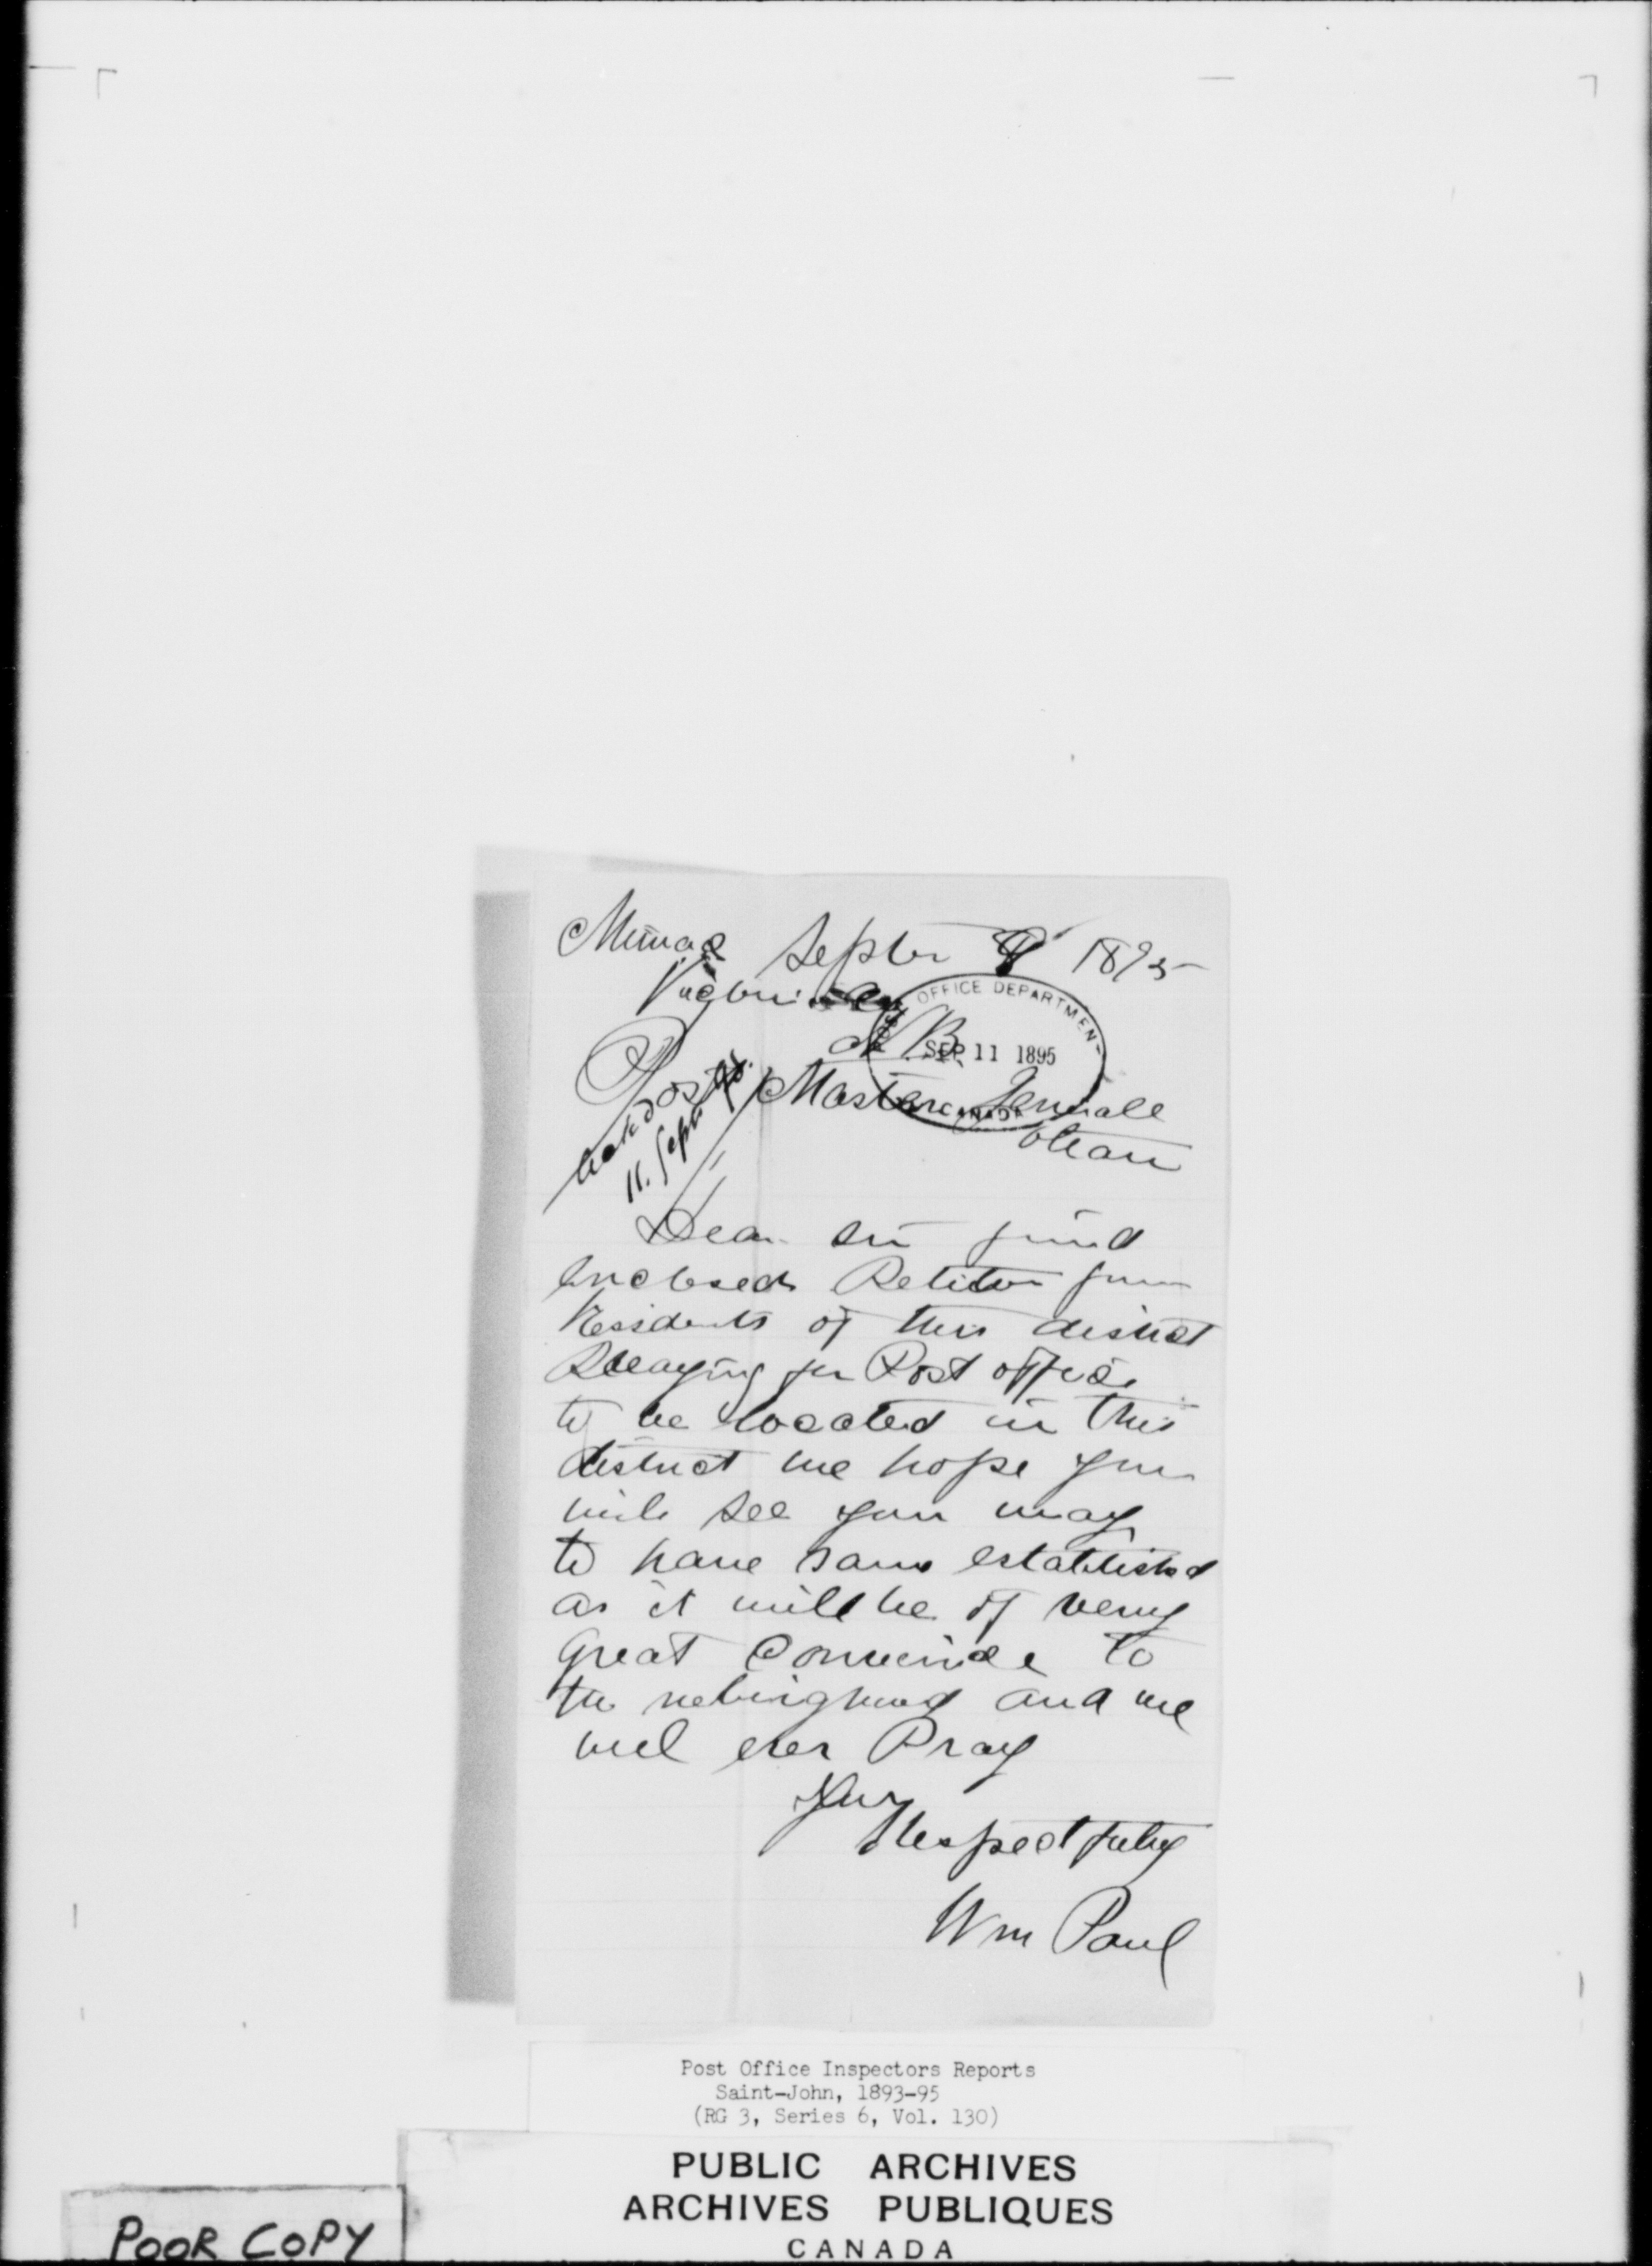 Septr 9 1895
Victoria Co
N B
OFFICE DEPARTMENT
SEP 11 1895
CANADA
Post Master Jenerall
ackd
11. Sept 95.
Dear Sir find
Enclosed Petition from
Residents of this district
Praying for Post office
to be located in this
district we hope you
will see your way
to have same established
as it will be of very
great Convenince to
the nebinghood and we
will ever Pray
Your
Respectfuly
Wm Paul
Post Office Inspectors Reports
Saint-John, 1893-95
(RG 3, Series 6, Vol. 130)
PUBLIC ARCHIVES
ARCHIVES PUBLIQUES
CANADA
POOR COPY